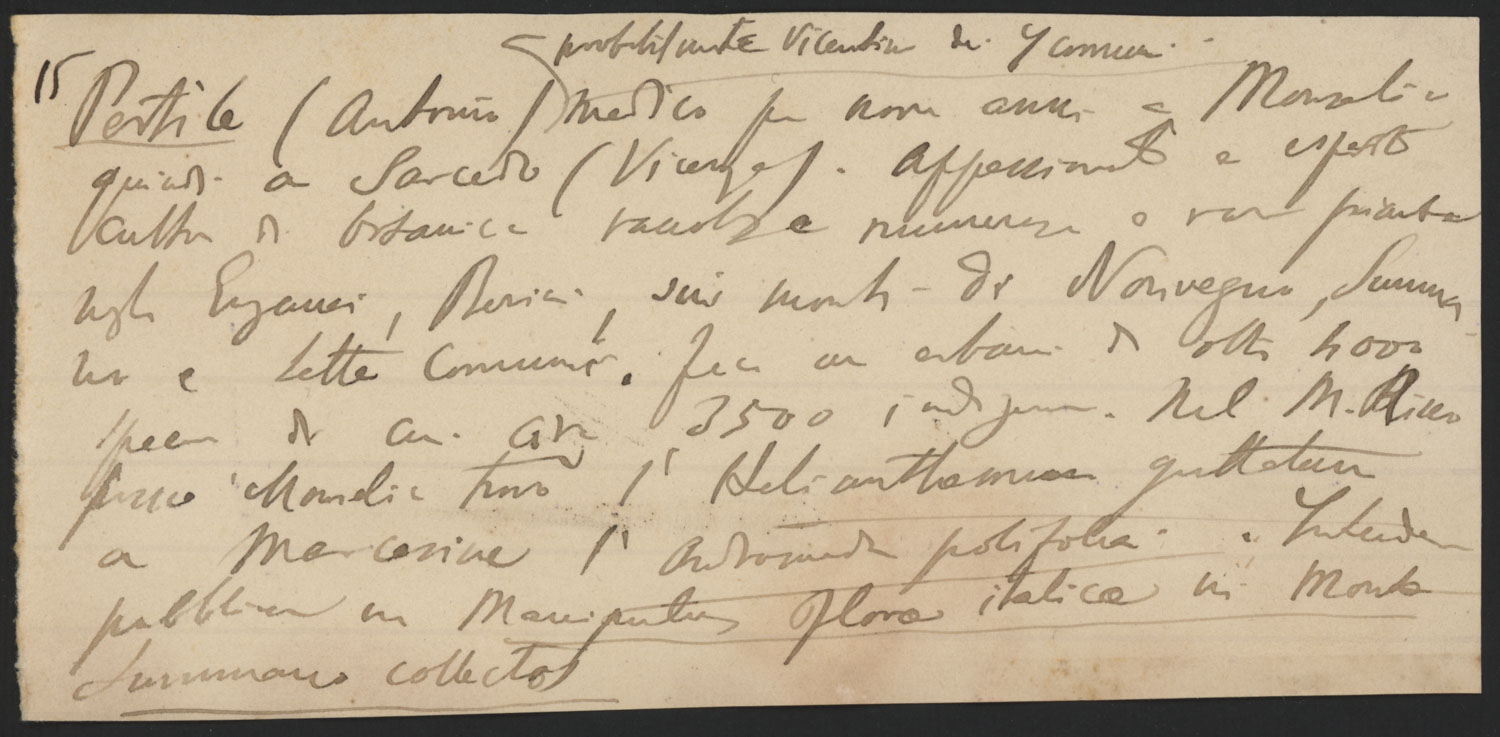 probabilmente Vicentino dei 7 comuni.
15
Pertile (Antonio) medico per nove anni a Monselice
quindi a Sarcedo (Vicenza). Appassionato e esperto
cultor di botanica raccolse numerose e rare piante
negli Euganei, Berici, sui monti di Novegno, Summa-
no e Sette Comuni. Fece un erbario di oltre 4000
specie di cui circa 3500 indigene. Nel M. Ricco
presso Monselice trovò l' Helianthemum guttatum
a Marcesine l' Andromeda polifolia. Intendeva
pubblicare un Manipulus Floræ italicæ in Monte
Summano collectus